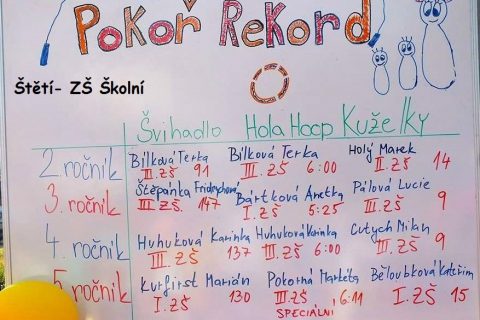 Pokoř Rekord
Štětí- ZŠ Školní
Švihadlo Hola Hoop Kuželky
2. ročník Bílková Terka Bílková Terka Holý Marek
II. ZŠ 91 II. ZŠ 6:00 II. ZŠ 14
3. ročník Štěpánka Bártková Anetka Pálová Lucie
III. ZŠ 147 I. ZŠ 5:25 III. ZŠ 9
4. ročník Huhuková Karinka Huhuková Karinka Cutych Milan
III. ZŠ 137 III. ZŠ 6:00 III. ZŠ 9
5. ročník Kurfirst Marián Pokorná Markéta Běloubková Kateřin
I. ZŠ 130 III. ZŠ 6:11 I. ZŠ 15
SPECIÁLNÍ